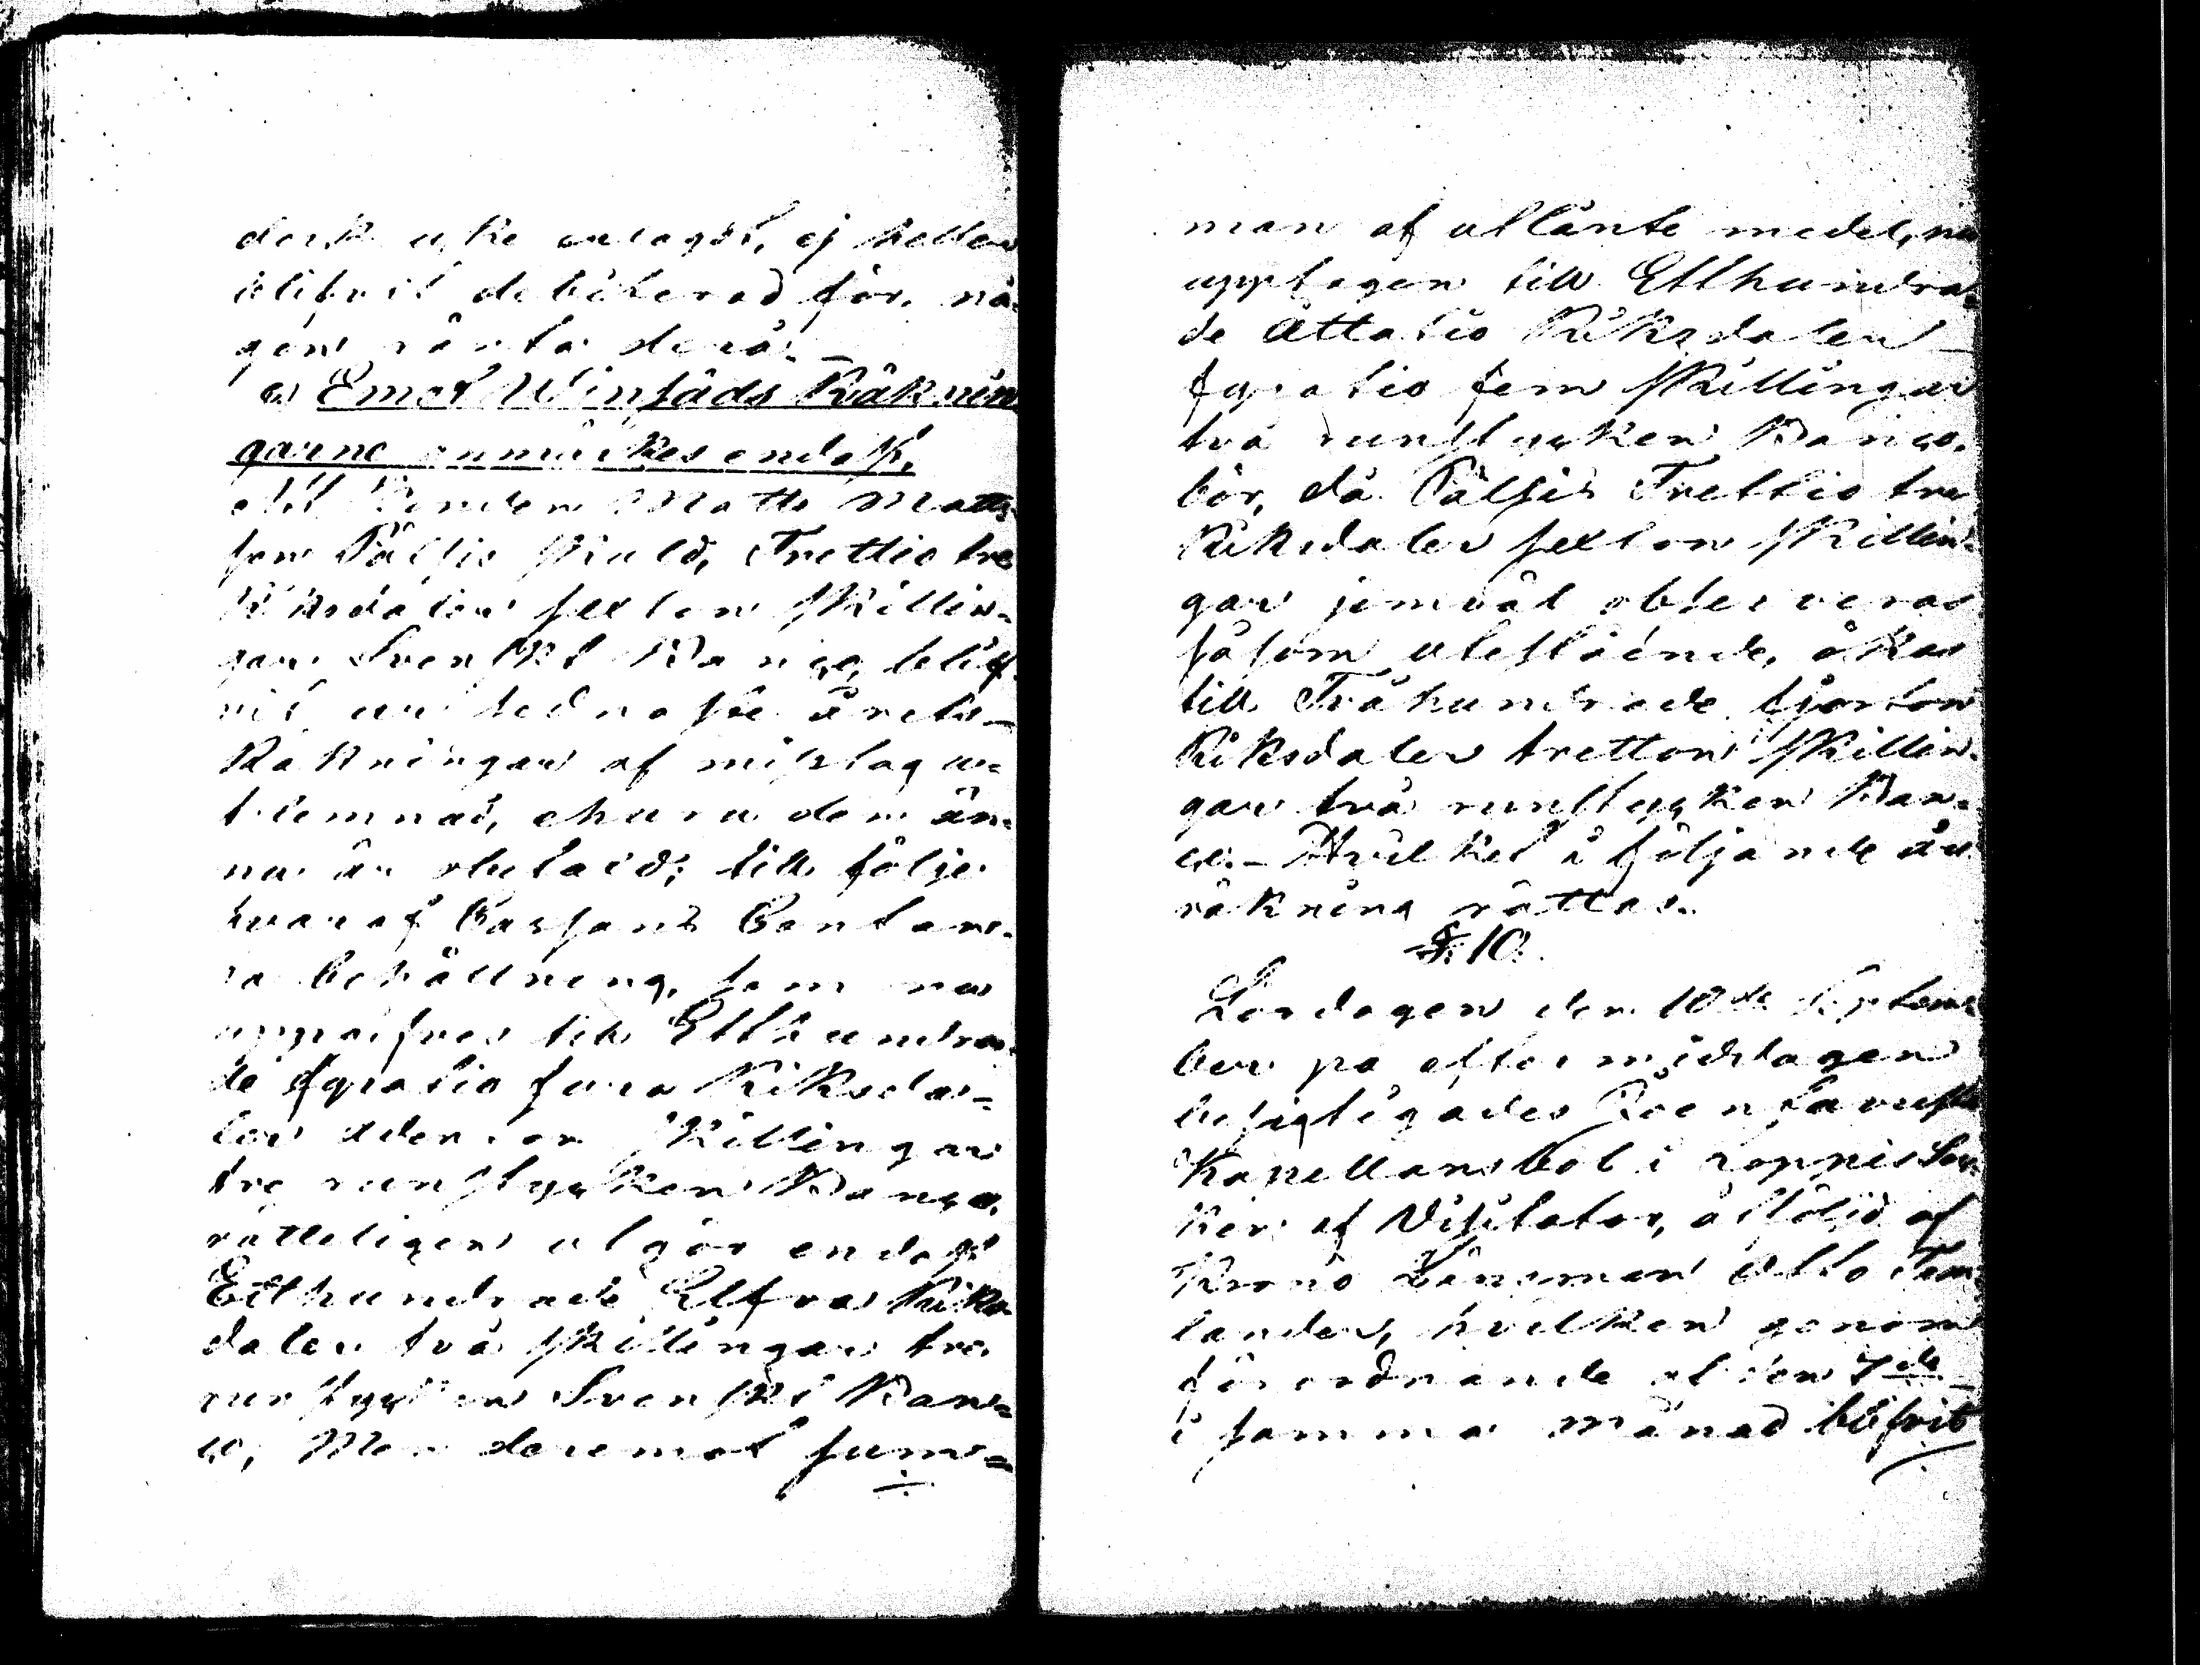 dock icke erlagdt, ej heller
blifvit debiterad för nå-
gon ränta derå. —
c) Emot Winsäds Räknin-
garne anmärkes endast,
att Bonden Matts Matts-
son Pälsis skuld, Trettio tre
Riksdaler sexton Skillin-
gar Svenskt Banco, blif-
vit ur sednaste årets
Räkningar af misstag u-
telemnad, ehuru den än-
nu är obetald; till följe
hvaraf Cassans Contan-
ta behållning, som nu
uppgifves till Etthundra-
de fyratio fyra Riksda-
ler aderton Skillingar
tre runstycken Banco,
rätteligen utgör endast
Etthundrade Elfva Riks-
daler två Skillingar tre
runstycken Svenskt Ban-
co; Men deremot sum-
man af utlånte medel, nu
upptagen till Etthundra-
de Åttatio Riksdaler
fyratio fem Skillingar
två runstycken Banco,
bör, då Pälsis Trettio tre
Riksdaler sexton Skillin-
gar jemväl observeras
såsom utestående, ökas
till Tvåhundrade fjorton
Riksdaler tretton Skillin-
gar två runstycken Ban-
co. — Hvilket i följande års
räkning rättas.
§. 10.
Lördagen den 10de Septem-
ber på eftermiddagen
besigtigades
Kapellansbol i Loppis
af Visitator, åtföljd af
Krono Länsman Otto
lander, hvilken genom
förordnande af den 7de
i samma Månad blifvit